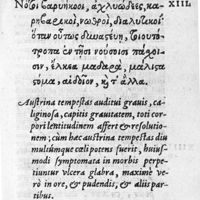 Νότοι βαρυήκοοι, ἀχλυώδεες, κα-
ρηβαρικοὶ, νωθροὶ, διαλυτικοί·
ὁπότ' ἂν οὗτος δυναστεύῃ, τοιουτό-
τροπα ἐν τῇσι νούσοισι πάσχου-
σιν, ἕλκεα μαδαρὰ, μάλιστα
στόμα, αἰδοῖον, κ τ' ἄλλα.
XIII.
Austrina tempestas auditui grauis, ca-
liginosa, capitis grauitatem, toti cor-
pori lentitudinem affert & resolutio-
nem; cum hæc austrina tempestas diu
multúmque cæli potens fuerit, huius-
modi symptomata in morbis perpe-
tiuntur vlcera glabra, maximè ve-
rò in ore, & pudendis, & aliis par-
tibus.